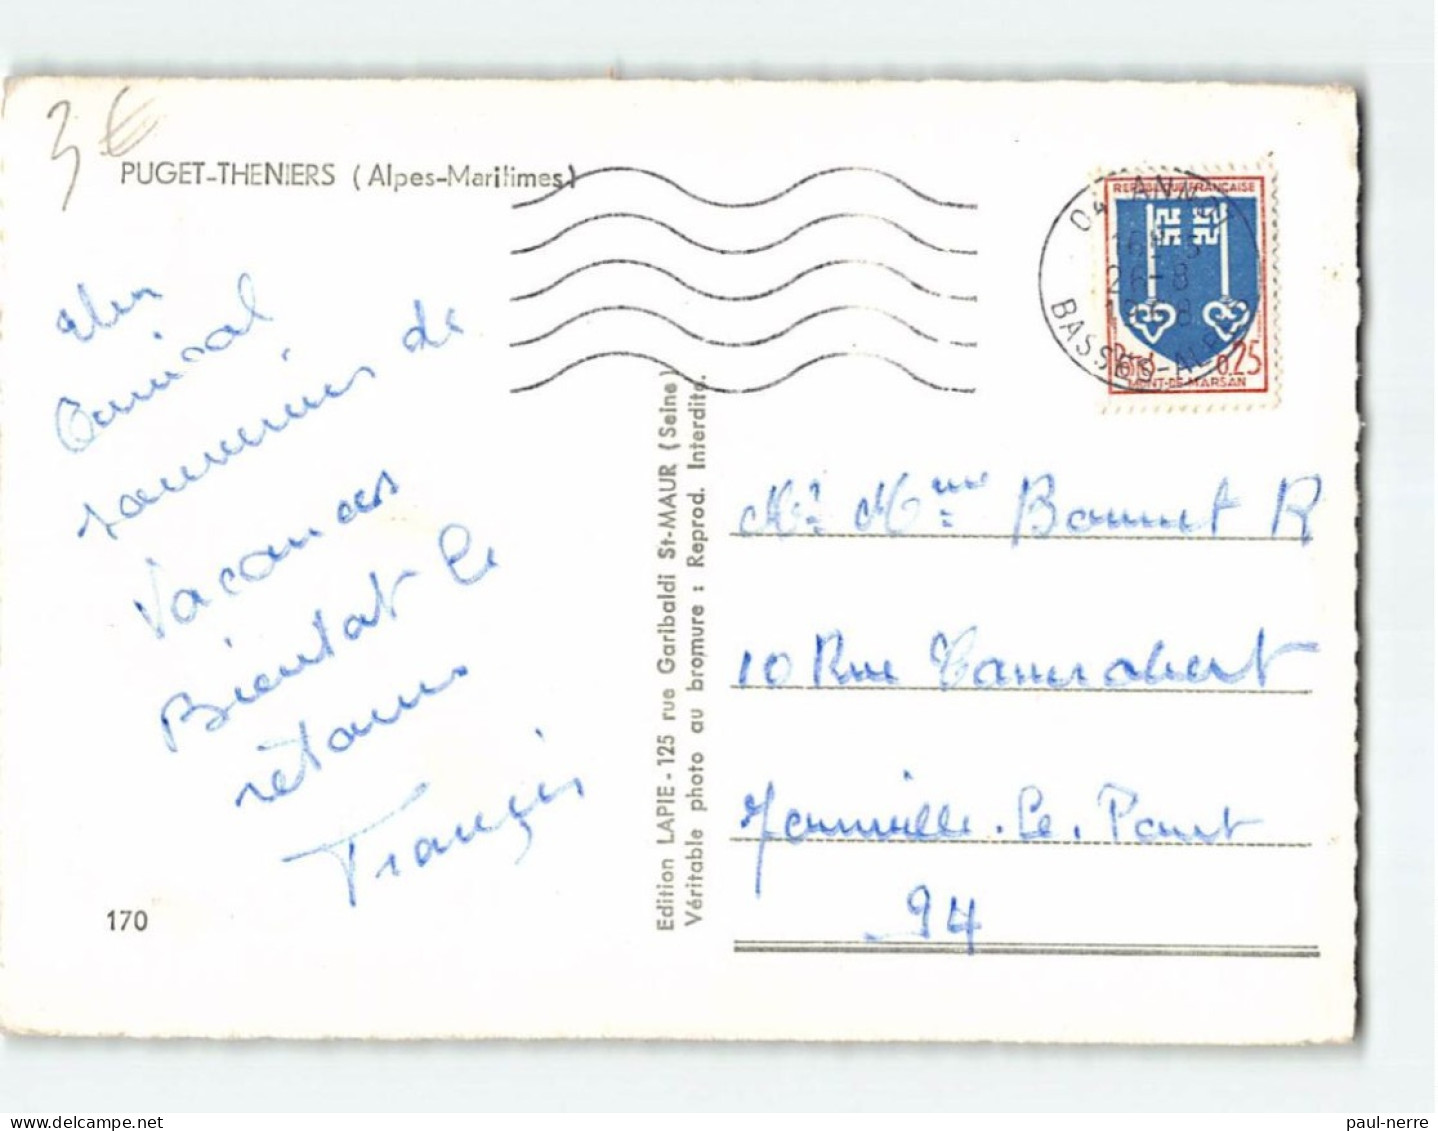 3€
PUGET-THENIERS (Alpes-Maritimes)
Un
Amical
souvenirs de
Vacances
Bientot le
rètour
Françis
170
Edition LAPIE - 125 rue Garibaldi St-MAUR (Seine)
Véritable photo au bromure : Reprod. Interdite.
REPUBLIQUE FRANÇAISE
0,25
MONT-DE-MARSAN
04 ANNOT
26-8
BASSES-ALPES
Mr Mme Bonnet R
10 Rue Canrobert
Joinville.Le.Pont
94
delcampe.net
paul-nerre